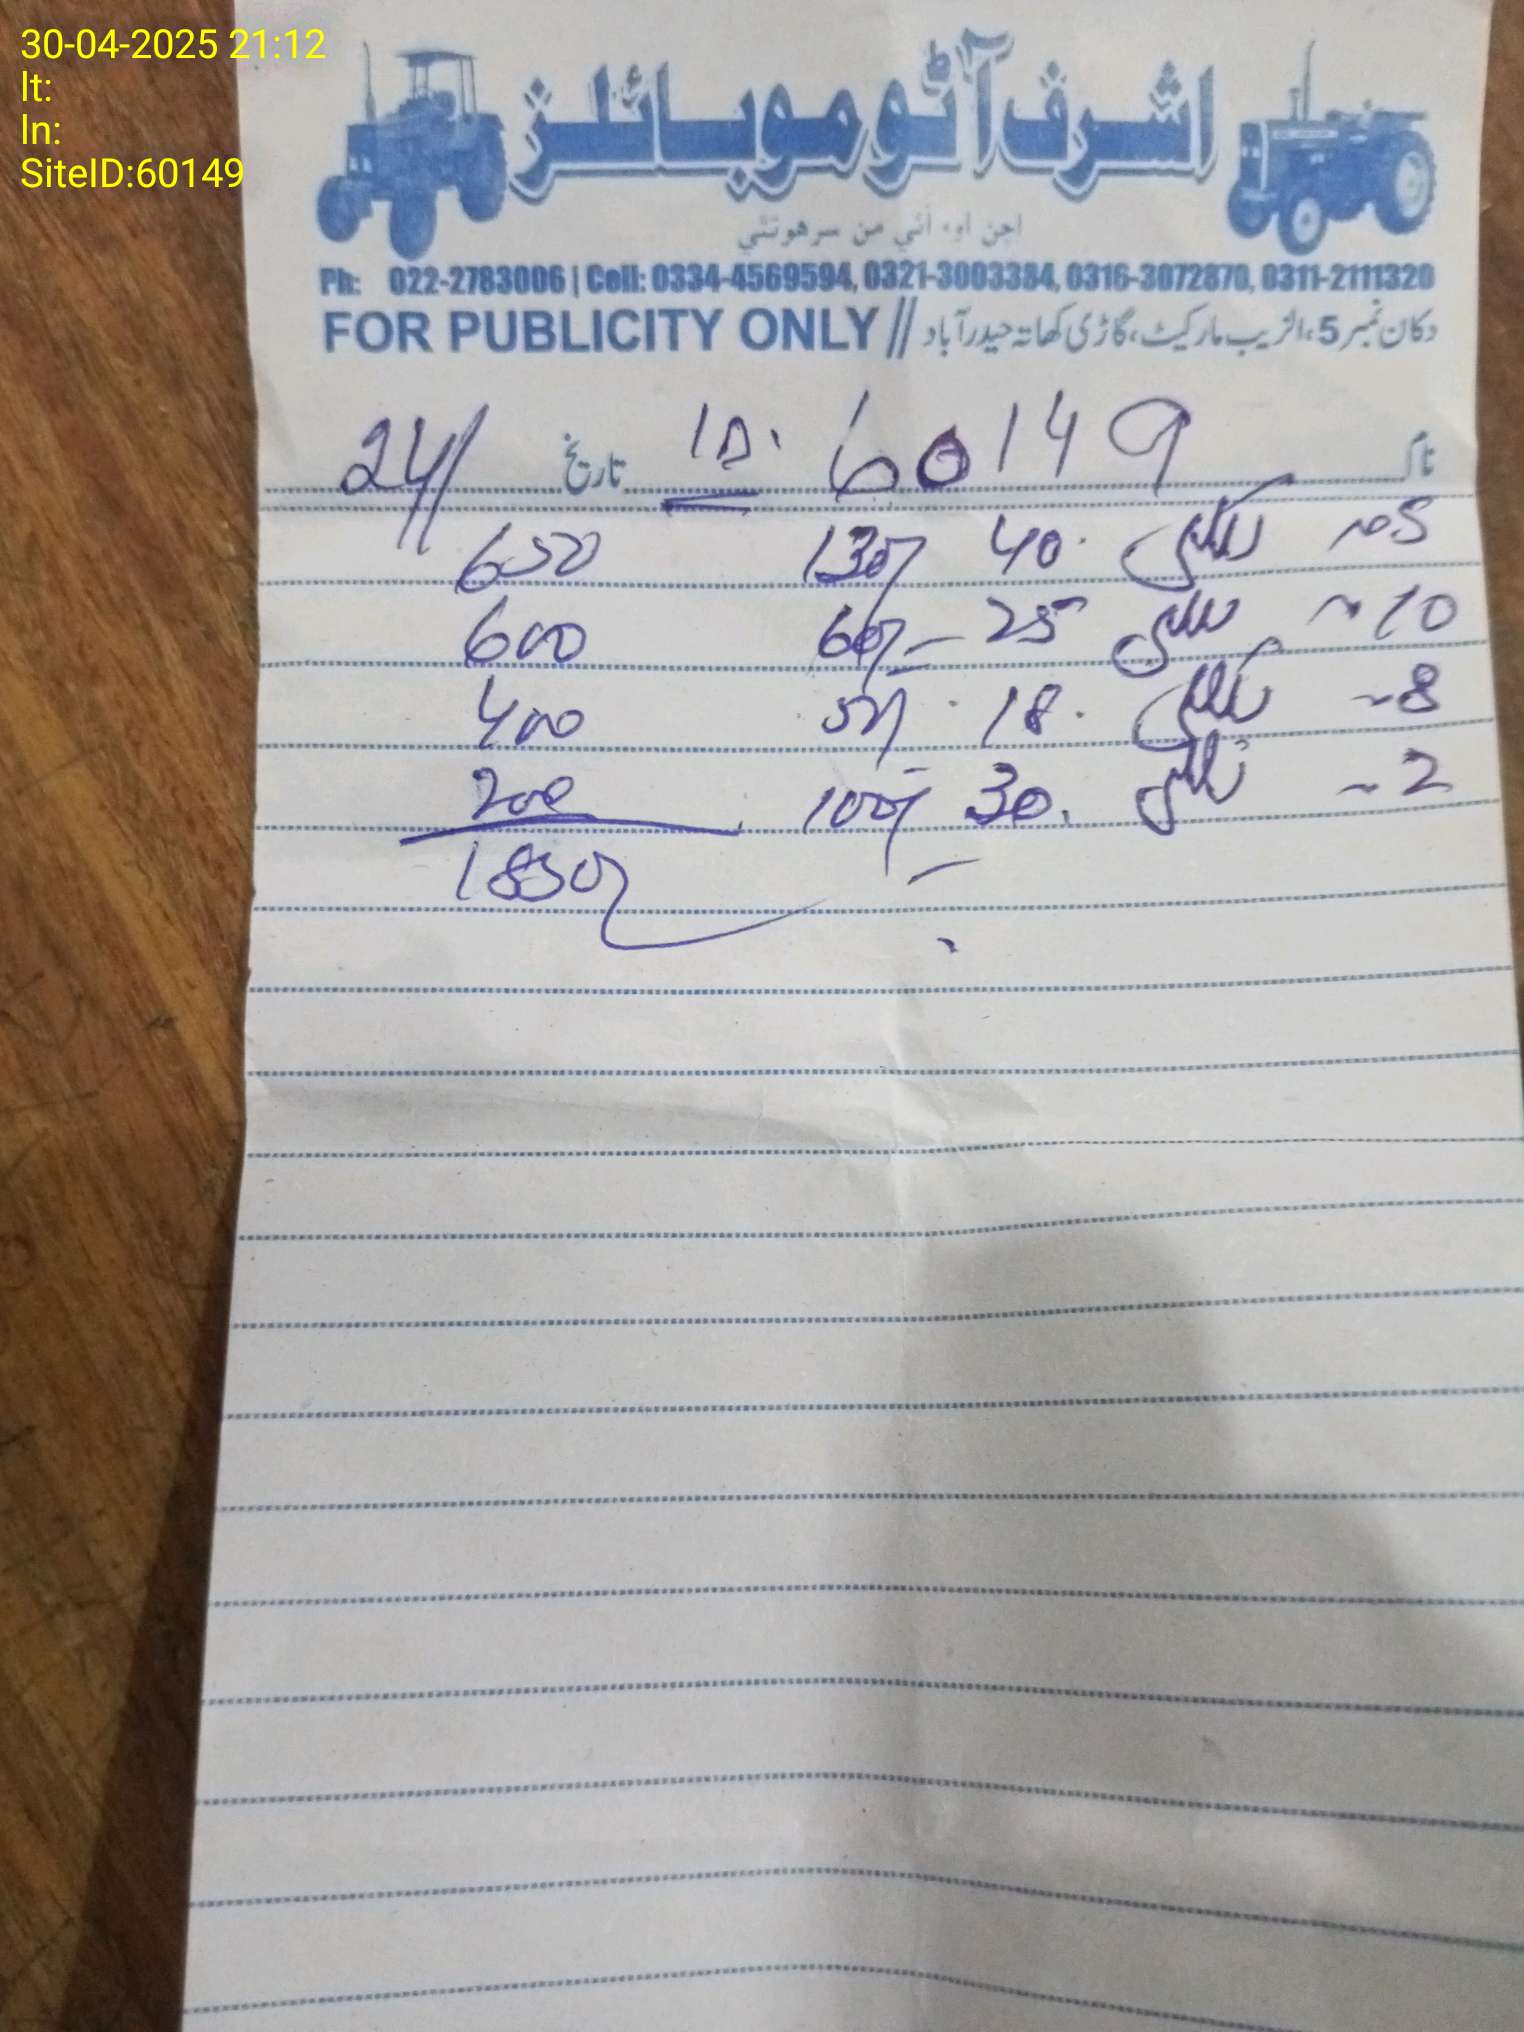 30-04-2025 21:12
lt:
ln:
SiteID:60149
اشرف آٹو موبائلز
اچن اوءَ آئي من سرهوٿئي
Ph: 022-2783006 | Cell: 0334-4569594, 0321-3003384, 0316-3072870, 0311-2111320
FOR PUBLICITY ONLY // دکان نمبر 5، الزیب مارکیٹ، گاڑی کھاتہ حیدرآباد
24/ تاریخ ID. 60149
650 130/ 40 5
600 60/ 25 10
400 50/ 18 8
200 100/ 30 2
1850/